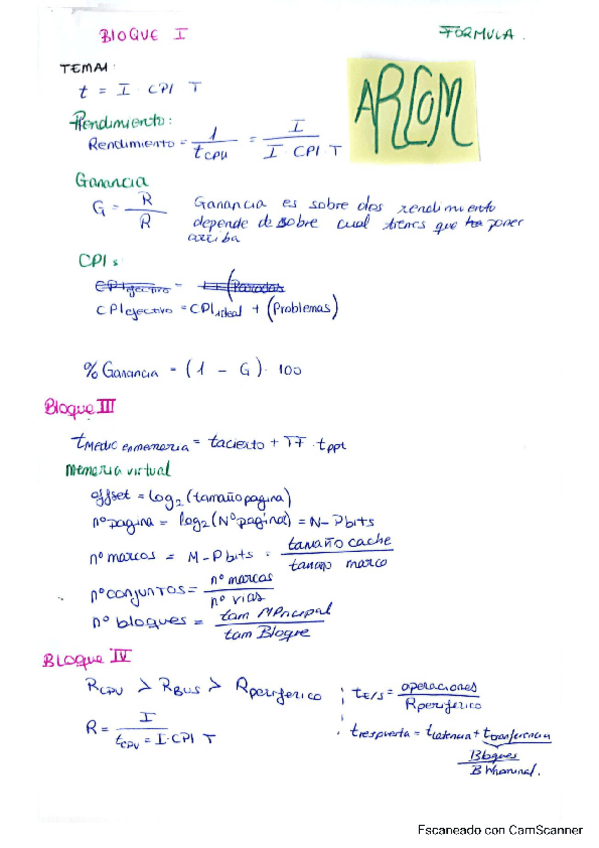 BLOQUE I
FORMULA.
ARCOM
TEMA1:
t = I · CPI T
Rendimiento:
Rendimiento = 1 / tCPU = I / I · CPI · T
Ganancia
G = R / R
Ganancia es sobre dos rendimiento
depende de sobre cual tienes que poner
arriba
CPI:
CPIefectivo = (Paradas
CPIefectivo = CPIideal + (Problemas)
% Ganancia = (1 - G) · 100
Bloque III
tMedio en memoria = tacierto + TF · tppt
Memoria virtual
offset = log2 (tamaño pagina)
nº pagina = log2 (Nº pagina) = N-P bits
nº marcos = M-P bits = tamaño cache / tamaño marco
nº conjuntos = nº marcas / nº vias
nº bloques = tam MPrncipal / tam Bloque
Bloque IV
RCPU > RBUS > Rperiferico ; tE/S = operaciones / Rperiferico
R = I / tCPU = I · CPI T
; trespuesta = tlatencia + ttransferencia
Bloques / B